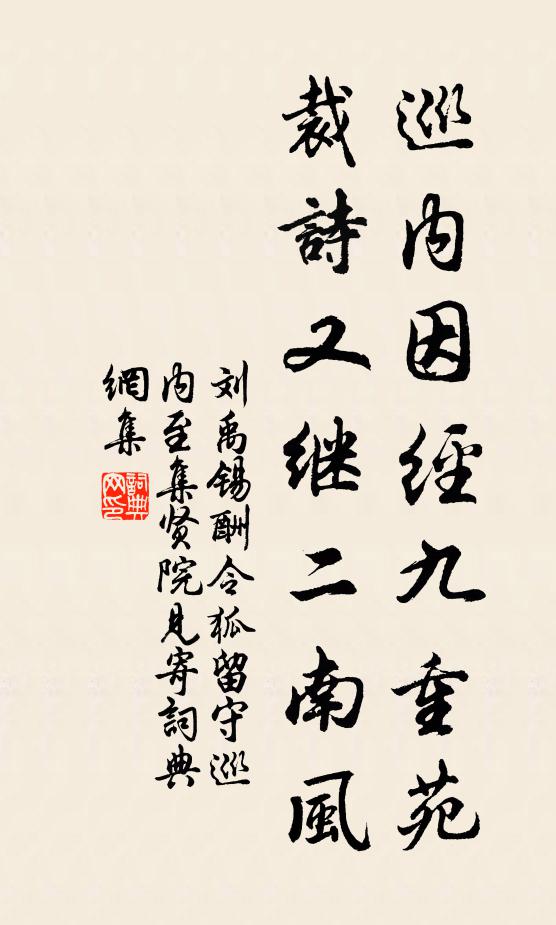 巡内因經九重苑
裁詩又继二南風
刘禹锡酬令狐留守巡
内至集贤院見寄詞典
網集
詞典
网印